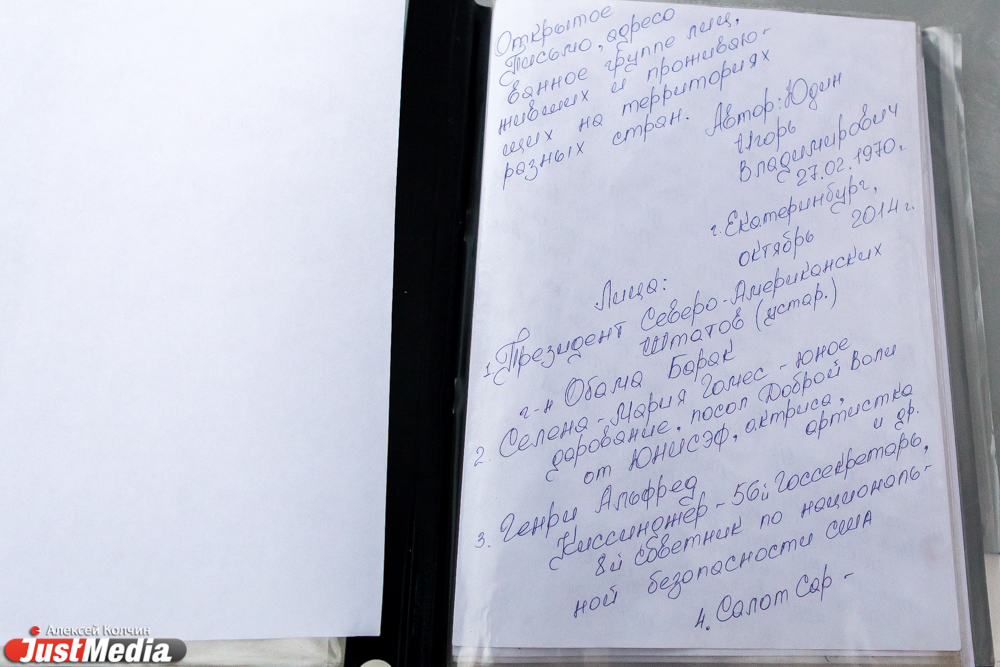 Открытое
Письмо, адресо
ванное группе лиц,
живших и проживаю-
щих на территориях
разных стран.
Автор: Юдин
Игорь
Владимирович
27.02.1970г.
г. Екатеринбург,
октябрь 2014г.
Лица:
1. Президент Северо-Американских
Штатов (устар.)
г-н Обама Барак
2. Селена-Мария Гомес - юное
дарование, посол Доброй Воли
от ЮНИСЭФ, актриса,
артистка
и др.
3. Генри Альфред
Киссинджер - 56й Госсекретарь,
8й советник по националь-
ной безопасности сша
4. Салот Сар -
Алексей Колчин
JustMedia